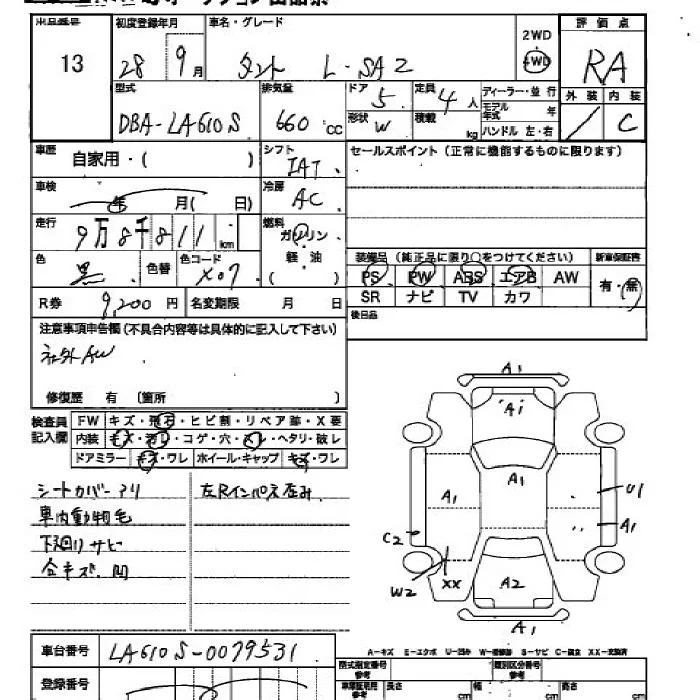 出品番号 初度登録年月 車名・グレード 評価点
13 28 9月 タント L・SA2 2WD 4WD RA
型式 排気量 ドア 5 定員 4人 ディーラー・並行 外装 内装
DBA-LA610S 660cc 形状 W 積載 kg モデル年式 年 ハンドル 左・右 / C
車歴 自家用・( ) シフト IAT セールスポイント（正常に機能するものに限ります）
車検 年 月( 日) 冷房 AC
走行 9万8千811km 燃料 ガソリン
軽油
( )
装備品（純正品に限り○をつけてください） 新車保証書
色 黒 色替 色コード X07 PS PW ABS エアB AW 有・無
R券 9,200円 名変期限 月 日 SR ナビ TV カワ
後日品
注意事項申告欄（不具合内容等は具体的に記入して下さい）
社外AW
修復歴 有 〔箇所 〕
検査員記入欄 FW キズ・飛石・ヒビ割・リペア跡・X要
内装 キズ・汚レ・コゲ・穴・スレ・ヘタリ・破レ
ドアミラー キズ・ワレ ホイール・キャップ キズ・ワレ
シートカバーアリ 左Rインパネ歪み
車内動物毛
下廻りサビ
全キズ.凹
A1
A1
A1
A1 U1
A1
C2
W2 XX A2
A1
A-キズ E-エクボ U-凹み W-補修跡 S-サビ C-腐食 XX-交換済
車台番号 LA610S-0079531
型式指定番号 参考 類別区分番号 参考
登録番号 長さ cm 幅 cm 高さ cm